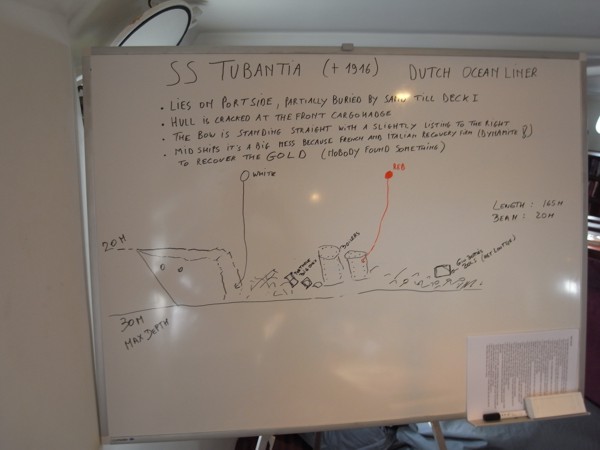 SS TUBANTIA (+ 1916) DUTCH OCEAN LINER
• LIES ON PORTSIDE, PARTIALLY BURIED BY SAND TILL DECK I
• HULL IS CRACKED AT THE FRONT CARGOHADGE
• THE BOW IS STANDING STRAIGHT WITH A SLIGHTLY LISTING TO THE RIGHT
• MIDSHIPS IT'S A BIG MESS BECAUSE FRENCH AND ITALIAN RECOVERY (DYNAMITE
TO RECOVER THE GOLD (NOBODY FOUND SOMETHING)
WHITE
RED
LENGTH: 165M
BEAM: 20M
20M
BOILERS
30M
MAX DEPTH